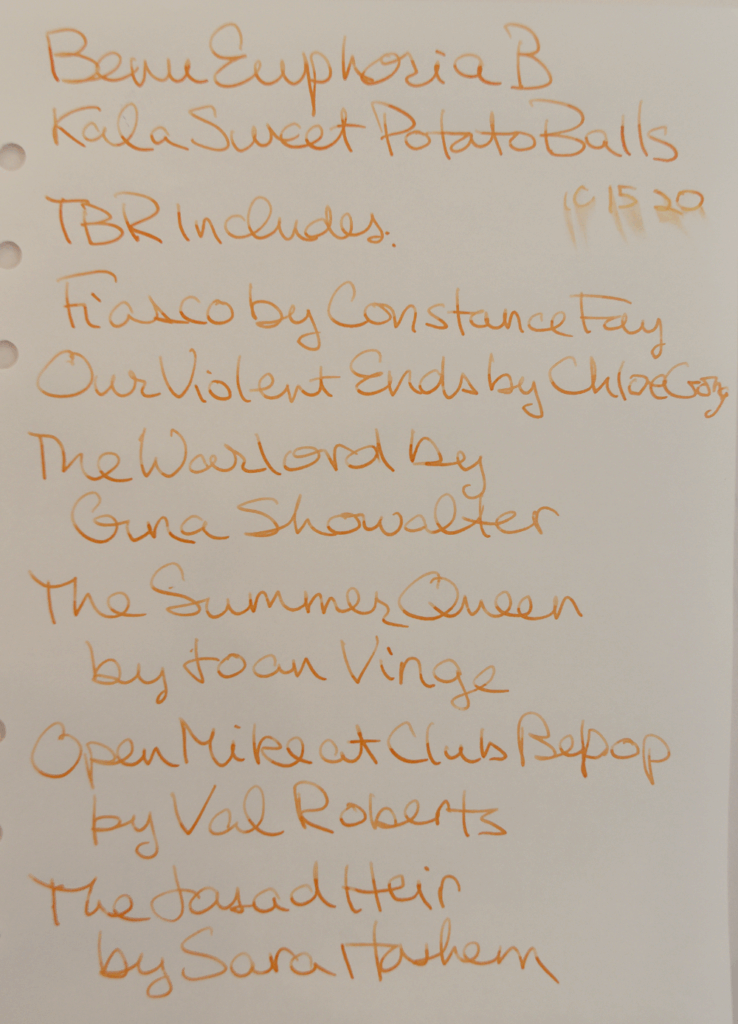 Benu Euphoria B
Kala Sweet Potato Balls
TBR Includes:
10 15 20
Fiasco by Constance Fay
Our Violent Ends by Chloe Gong
The Warlord by
Gena Showalter
The Summer Queen
by Joan Vinge
Open Mike at Club Bebop
by Val Roberts
The Jasad Heir
by Sara Hashem